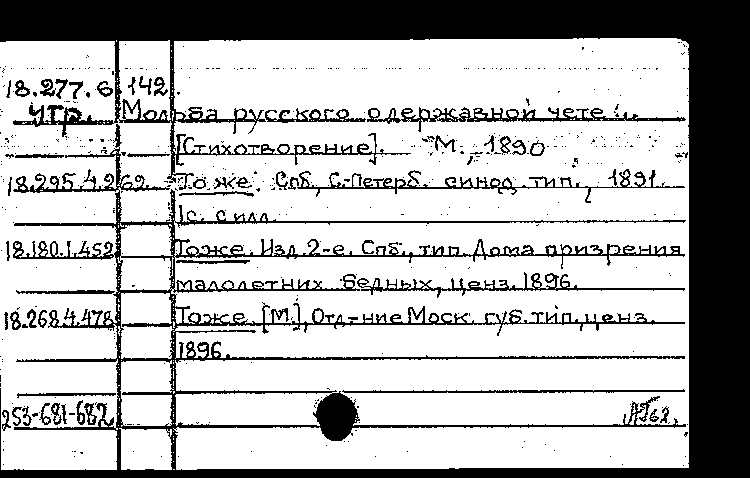 18.277.6.142.
утр. Мольба русского о державной чете...
[Стихотворение]. М., 1890
18.295.4.269. То же. Спб., С.-Петерб. синод. тип., 1891.
1с. с илл.
18.180.1.452 То же. Изд. 2-е. Спб., тип. Дома призрения
малолетних бедных, ценз. 1896.
18.268.4.478 То же. [М.], Отд-ние Моск. губ. тип., ценз.
1896.
253-681-682